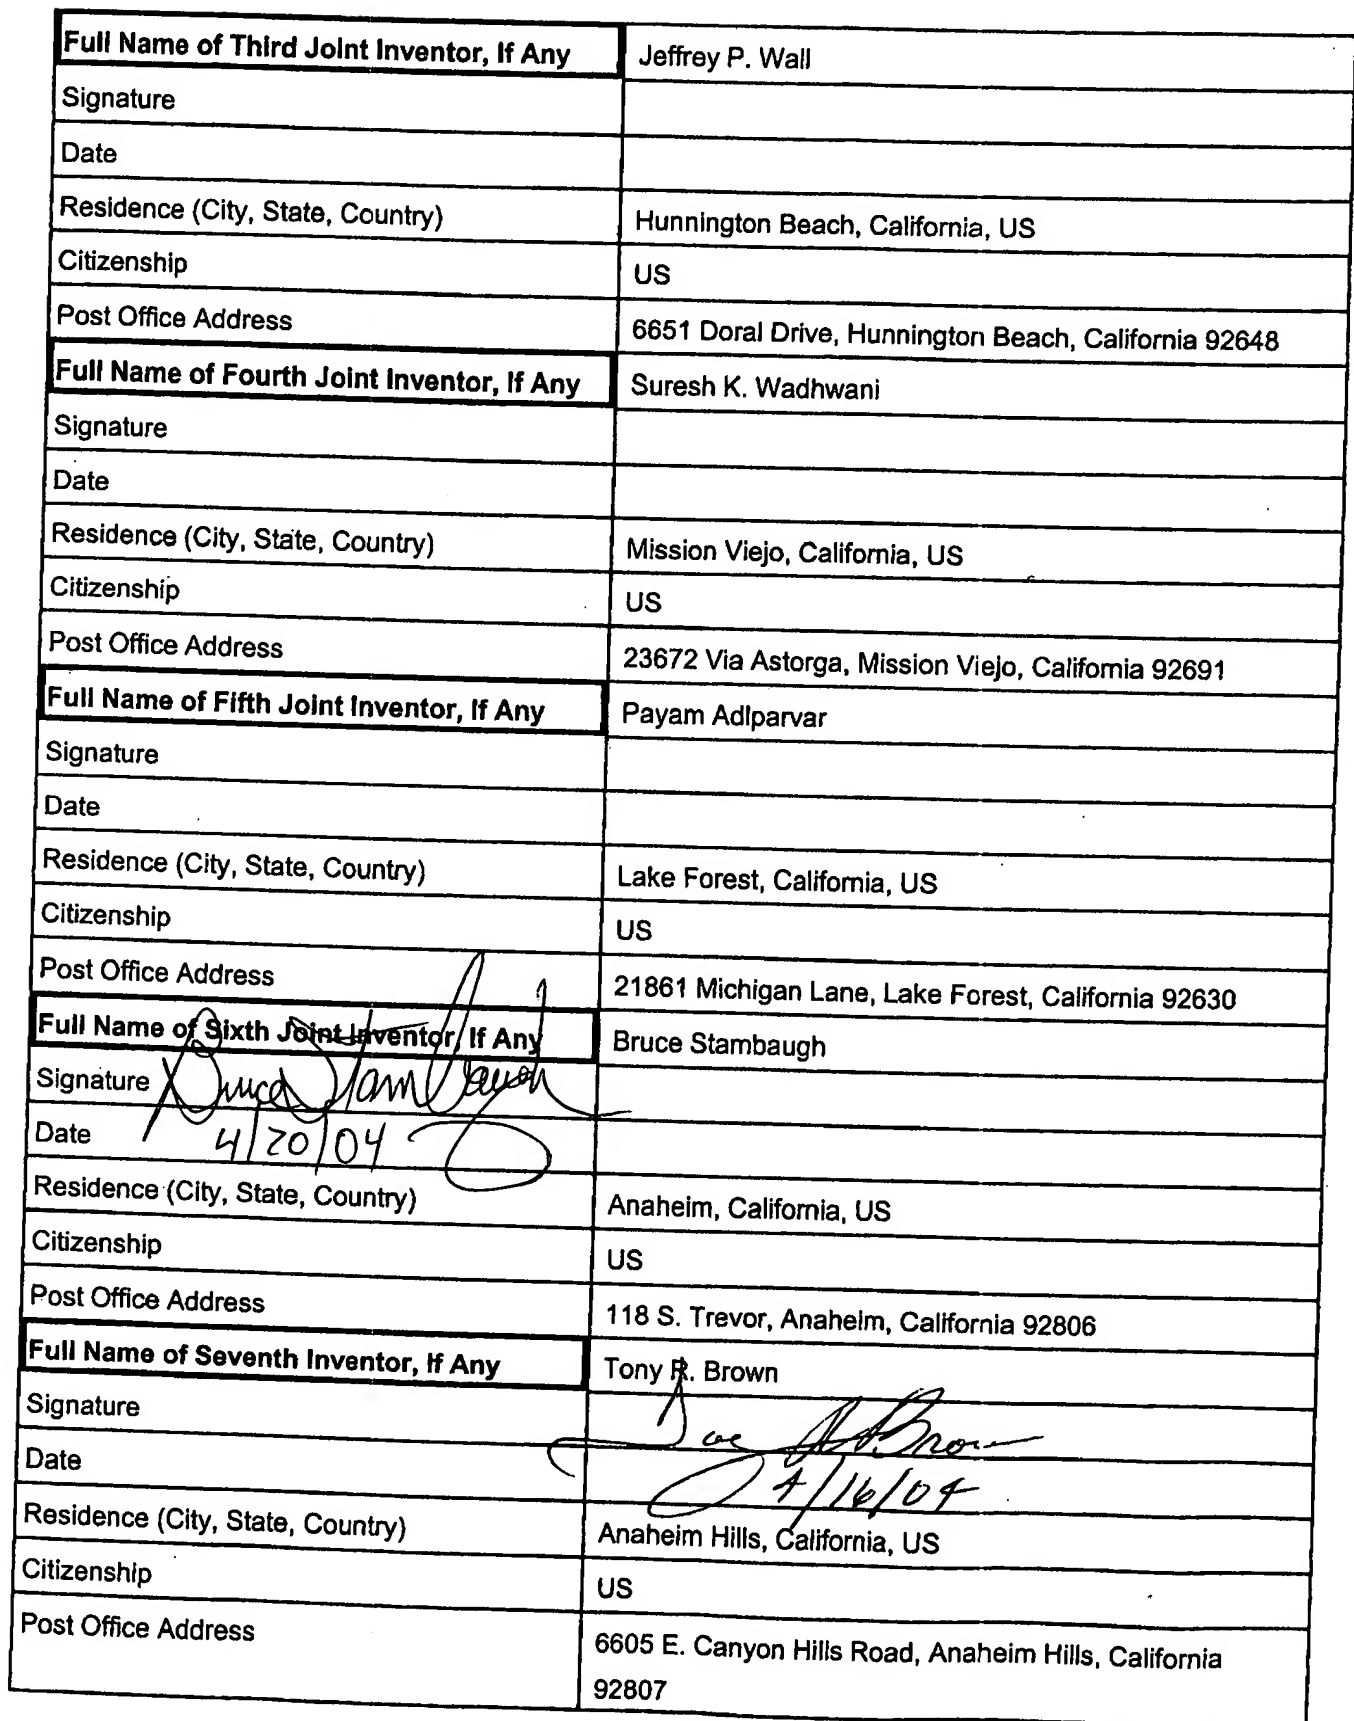 Full Name of Third Joint Inventor, If Any Jeffrey P. Wall
Signature
Date
Residence (City, State, Country) Hunnington Beach, California, US
Citizenship US
Post Office Address 6651 Doral Drive, Hunnington Beach, California 92648
Full Name of Fourth Joint Inventor, If Any Suresh K. Wadhwani
Signature
Date
Residence (City, State, Country) Mission Viejo, California, US
Citizenship US
Post Office Address 23672 Via Astorga, Mission Viejo, California 92691
Full Name of Fifth Joint Inventor, If Any Payam Adlparvar
Signature
Date
Residence (City, State, Country) Lake Forest, California, US
Citizenship US
Post Office Address 21861 Michigan Lane, Lake Forest, California 92630
Full Name of Sixth Joint Inventor, If Any Bruce Stambaugh
Signature Bruce Stambaugh
Date 4/20/04
Residence (City, State, Country) Anaheim, California, US
Citizenship US
Post Office Address 118 S. Trevor, Anaheim, California 92806
Full Name of Seventh Inventor, If Any Tony R. Brown
Signature Tony R. Brown
Date 4/16/04
Residence (City, State, Country) Anaheim Hills, California, US
Citizenship US
Post Office Address 6605 E. Canyon Hills Road, Anaheim Hills, California
92807